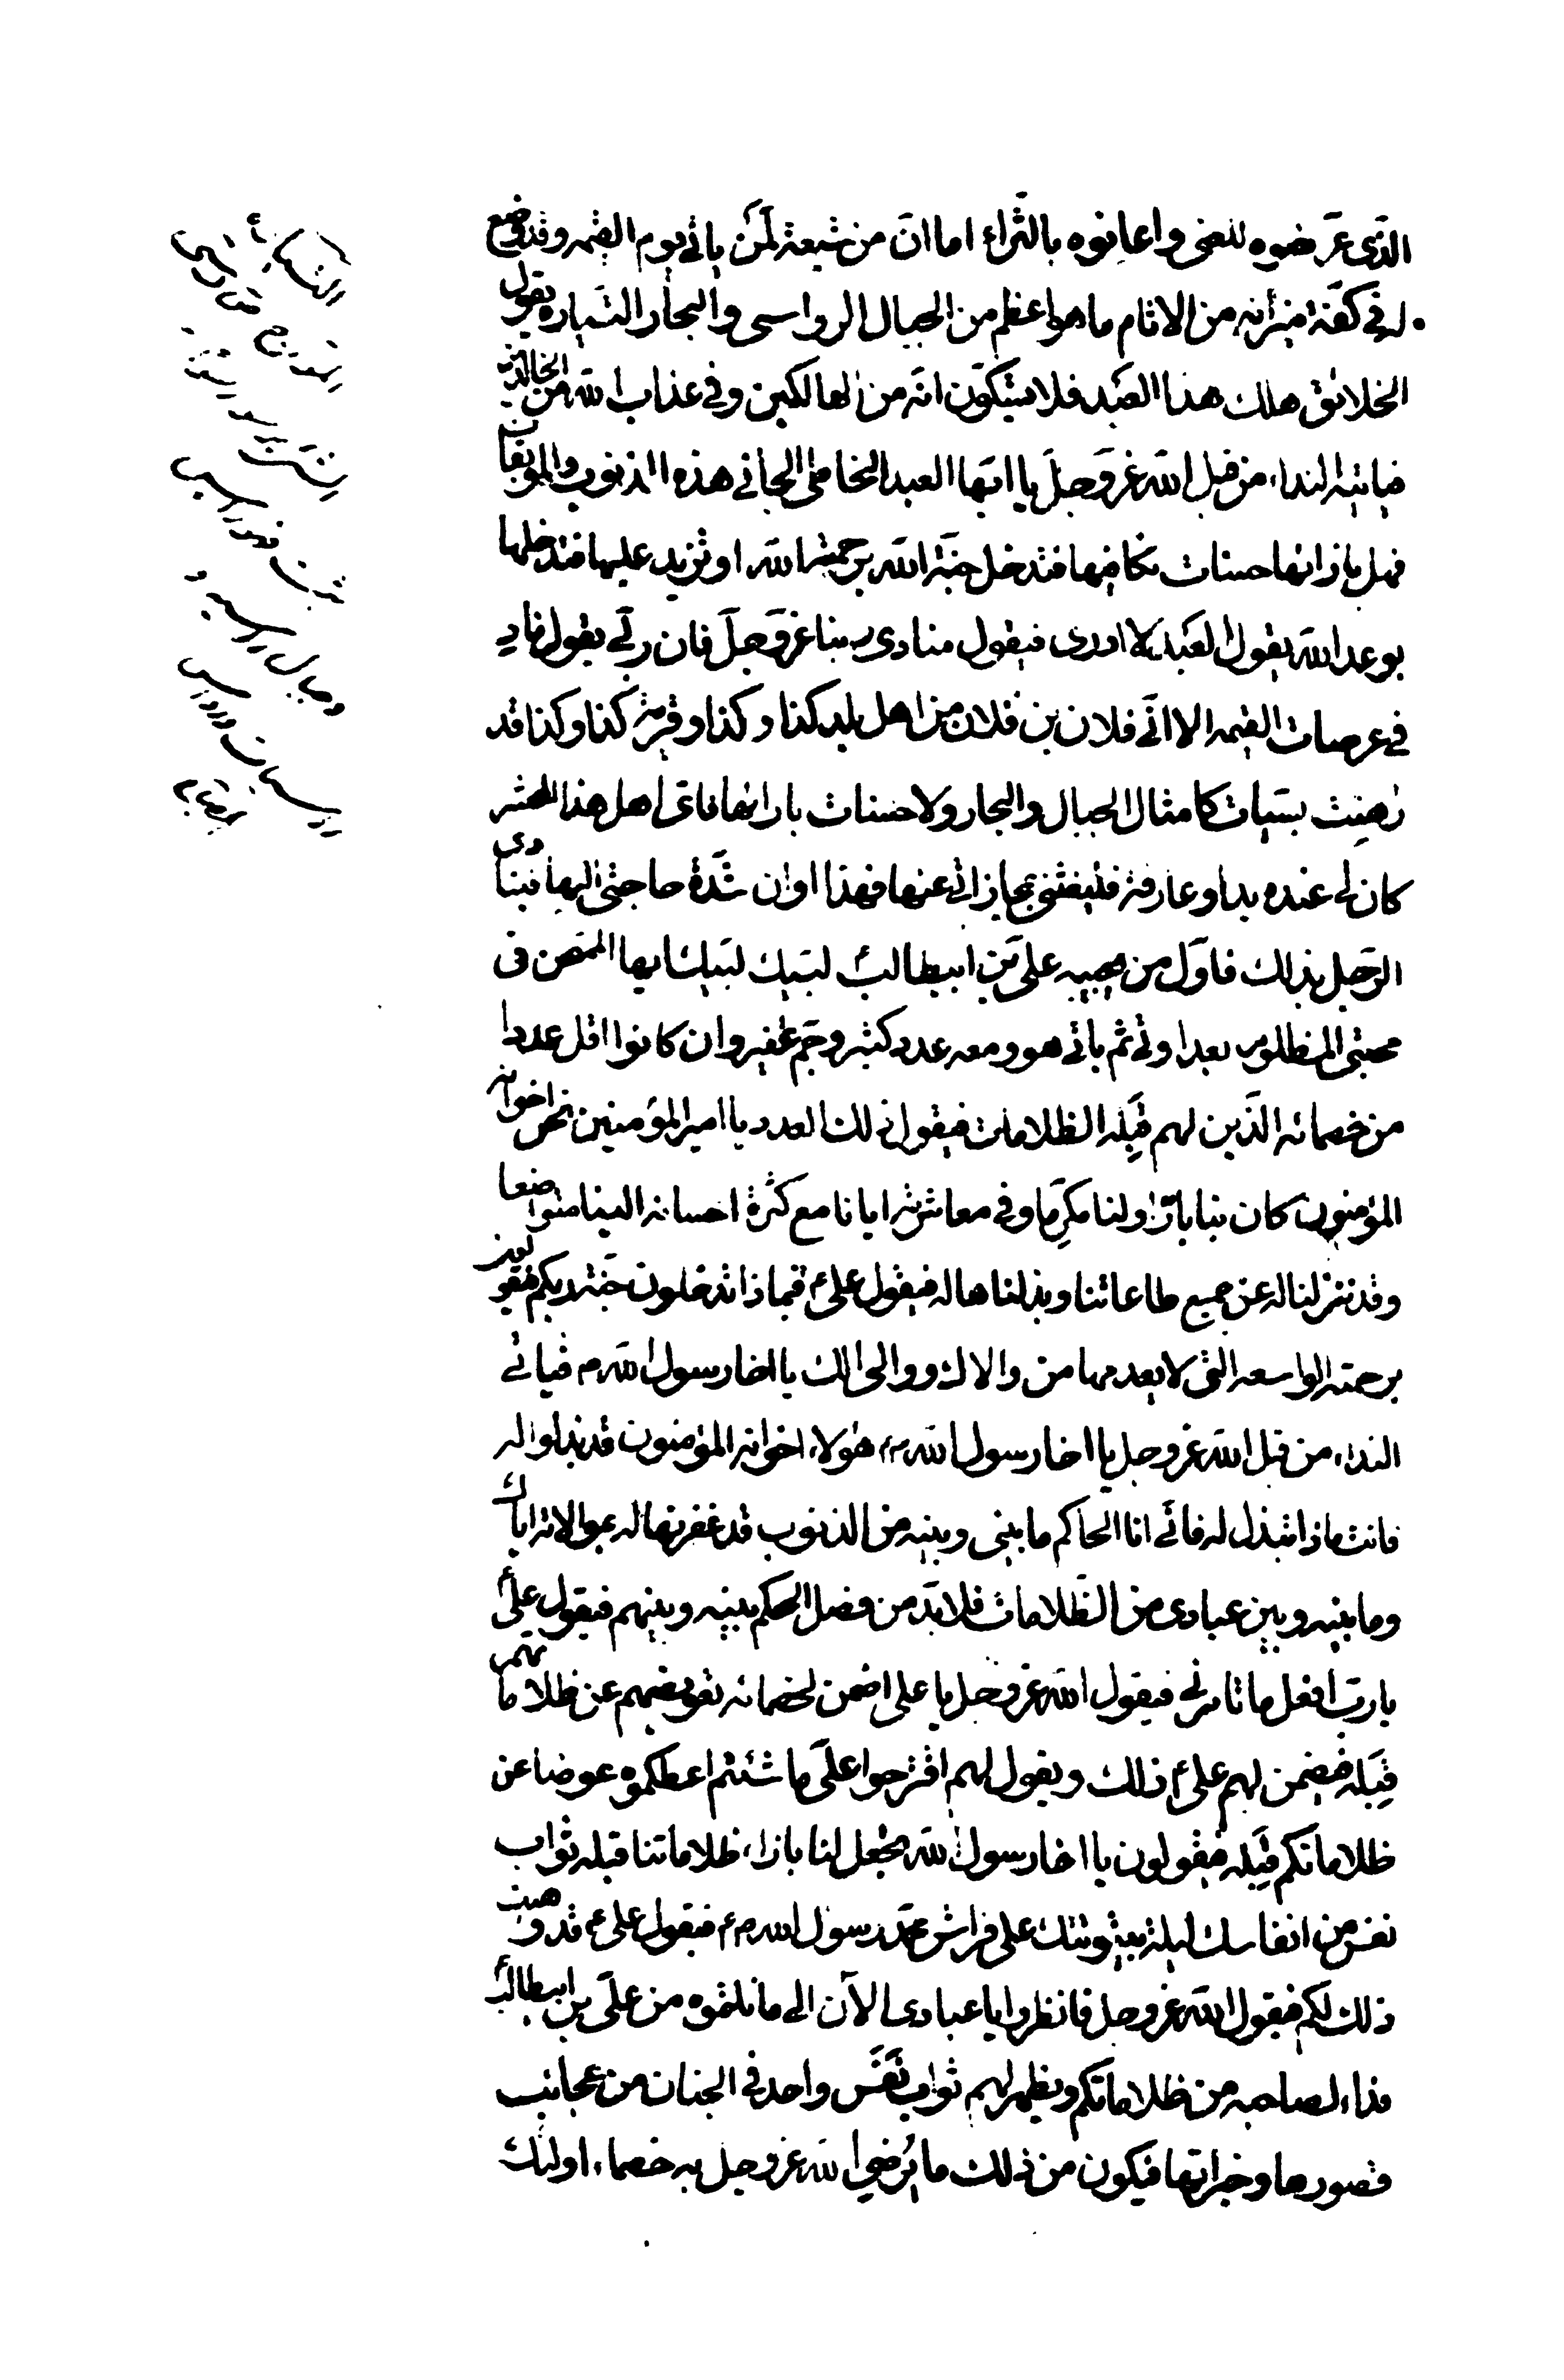 الذی عرضوه للغنی واعانوه بالثراء اما ان من شیعة لمن یاتی یوم القیمه وقد وضع
له فی کفة میزانه من الاثام ما هو اعظم من الجبال الرواسی والبحار التیاره یقول
الخلائق هلك هذا العبد فلا یشکون انه من الهالکین وفی عذاب الله من الخالدین
فیاتیه النداء من قبل الله عز وجل یا ایها العبد الخاطی الجانی هذه الذنوب والموبقات
فهل بازائها حسنات تکافیها فتدخل جنة الله برحمة الله او تزید علیها فتدخلها
بوعد الله یقول العبد لا ادری فیقول منادی ربنا عز وجل فان ربی یقول ناد
فی عرصات القیمه الا انی فلان بن فلان من اهل بلد کذا وکذا وقریة کذا وکذا قد
رهنت بسیات کامثال الجبال والبحار ولا حسنات بازائها فای اهل هذا المحشر
کان لی عنده ید او عارفة فلیغثنی بمجازاتی عنها فهذا اوان شدة حاجتی الیها فینادی
الرجل بذلك فاول من یجیبه علی بن ابیطالب لبیك لبیك ایها الممتحن فی
محبتی المظلوم بعداوتی ثم یاتی هو ومعه عدد کثیر وجم غفیر وان کانوا اقل عددا
من خصمائه الذین لهم قبله الظلامات فیقول ذلك العدد یا امیر المؤمنین نحن اخوانه
المؤمنون کان بنا بارا ولنا مکرما وفی معاشرته ایانا مع کثرة احسانه الینا متواضعا
وقد نزلنا له عن جمیع طاعاتنا وبذلناها له فیقول علی ع فبماذا تدخلون جنة ربکم فیقولون
برحمته الواسعه التی لا یعدمها من والاك ووالی الك یا اخا رسول الله ص فیاتی
النداء من قبل الله عز وجل یا اخا رسول الله ص هؤلاء اخوانه المؤمنون قد بذلوا له
فانت ماذا تبذل له فانی انا الحاکم ما بینی وبینه من الذنوب قد غفرتها له بموالاته ایاك
وما بینه وبین عبادی من الظلامات فلا بد من فصل الحکم بینه وبینهم فیقول علی ع
یا رب افعل ما تامرنی فیقول الله عز وجل یا علی اضمن لخصمائه تعویضهم عن ظلاماتهم
قبله فیضمن لهم علی ع ذلك ویقول لهم اقترحوا علی ما شئتم اعطکموه عوضا عن
ظلاماتکم قبله فیقولون یا اخا رسول الله تجعل لنا بازاء ظلاماتنا قبله ثواب
نفس من انفاسك لیلة بیتوتتك علی فراش محمد رسول الله ص فیقول علی ع قد وهبت
ذلك لکم فیقول الله عز وجل فانظروا یا عبادی الآن الی ما نلتموه من علی بن ابیطالب
فداء لصاحبه من ظلاماتکم ویظهر لهم ثواب نفس واحد فی الجنان من عجائب
قصورها وخیراتها فیکون من ذلك ما یرضی الله عز وجل به خصماء اولئك